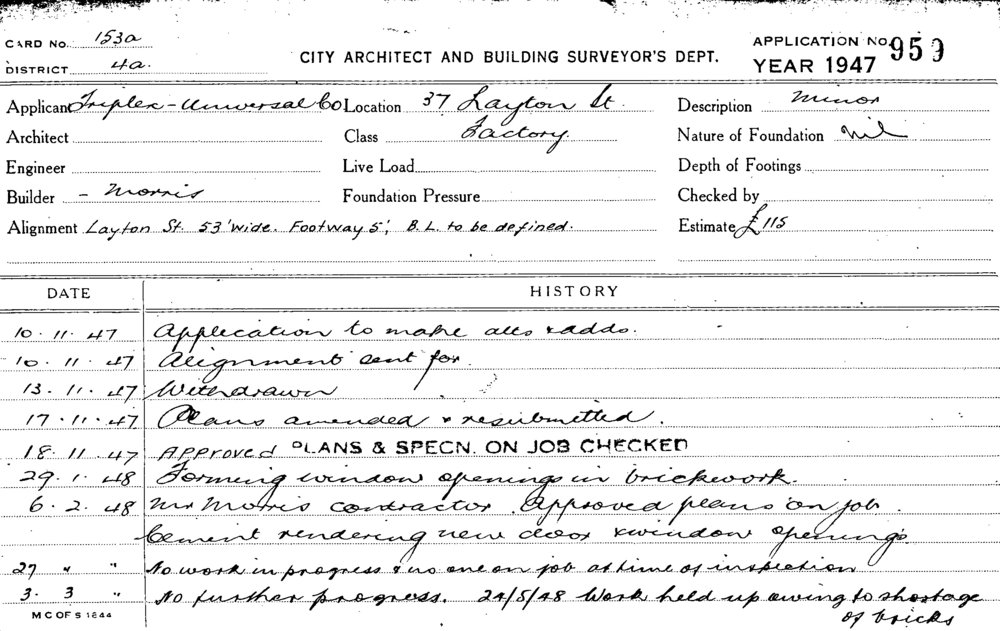 CARD No. 153a
DISTRICT 4a.
CITY ARCHITECT AND BUILDING SURVEYOR'S DEPT.
APPLICATION No 959
YEAR 1947
Applicant Triplex-Universal Co Location 37 Layton St. Description Minor
Architect Class Factory. Nature of Foundation nil
Engineer Live Load Depth of Footings
Builder - Morris Foundation Pressure Checked by
Alignment Layton St. 53' wide. Footway 5', B.L. to be defined. Estimate £115
DATE HISTORY
10.11.47 Application to make alts & adds.
10.11.47 Alignment sent for
13.11.47 Withdrawn
17.11.47 Plans amended & resubmitted.
18.11.47 Approved PLANS & SPECN. ON JOB CHECKED
29.1.48 Forming window openings in brickwork.
6.2.48 Mr Morris contractor. Approved plans on job.
Cement rendering new door & window openings
27 " " No work in progress & no one on job at time of inspection
3. 3 " No further progress. 24/5/48 Work held up owing to shortage
of bricks
M C OF S 1844